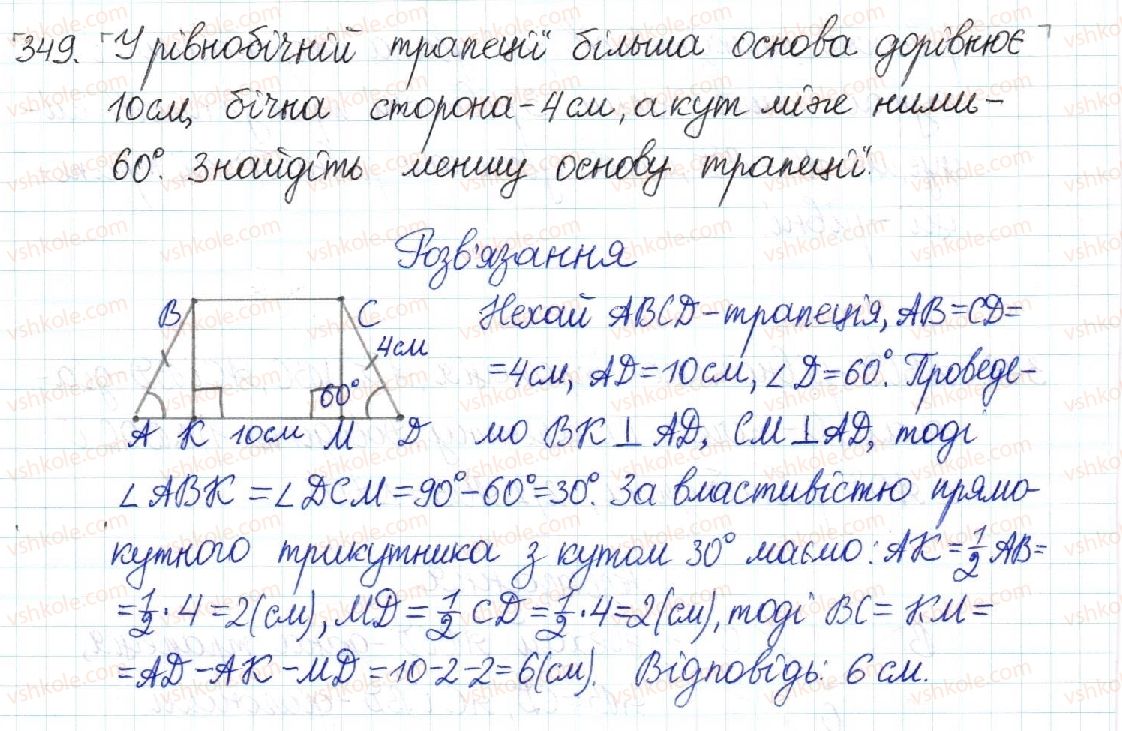 349. У рівнобічній трапеції більша основа дорівнює
10см, бічна сторона - 4см, а кут між ними -
60°. Знайдіть меншу основу трапеції.
Розв'язання
B C
4см
60°
A K 10см M D
Нехай ABCD - трапеція, AB = CD =
= 4см, AD = 10см, ∠D = 60°. Проведе-
мо BK ⊥ AD, CM ⊥ AD, тоді
∠ABK = ∠DCM = 90° - 60° = 30°. За властивістю прямо-
кутного трикутника з кутом 30° маємо: AK = 1/2 AB =
= 1/2 · 4 = 2(см), MD = 1/2 CD = 1/2 · 4 = 2(см), тоді BC = KM =
= AD - AK - MD = 10 - 2 - 2 = 6(см). Відповідь: 6 см.
vshkole.com